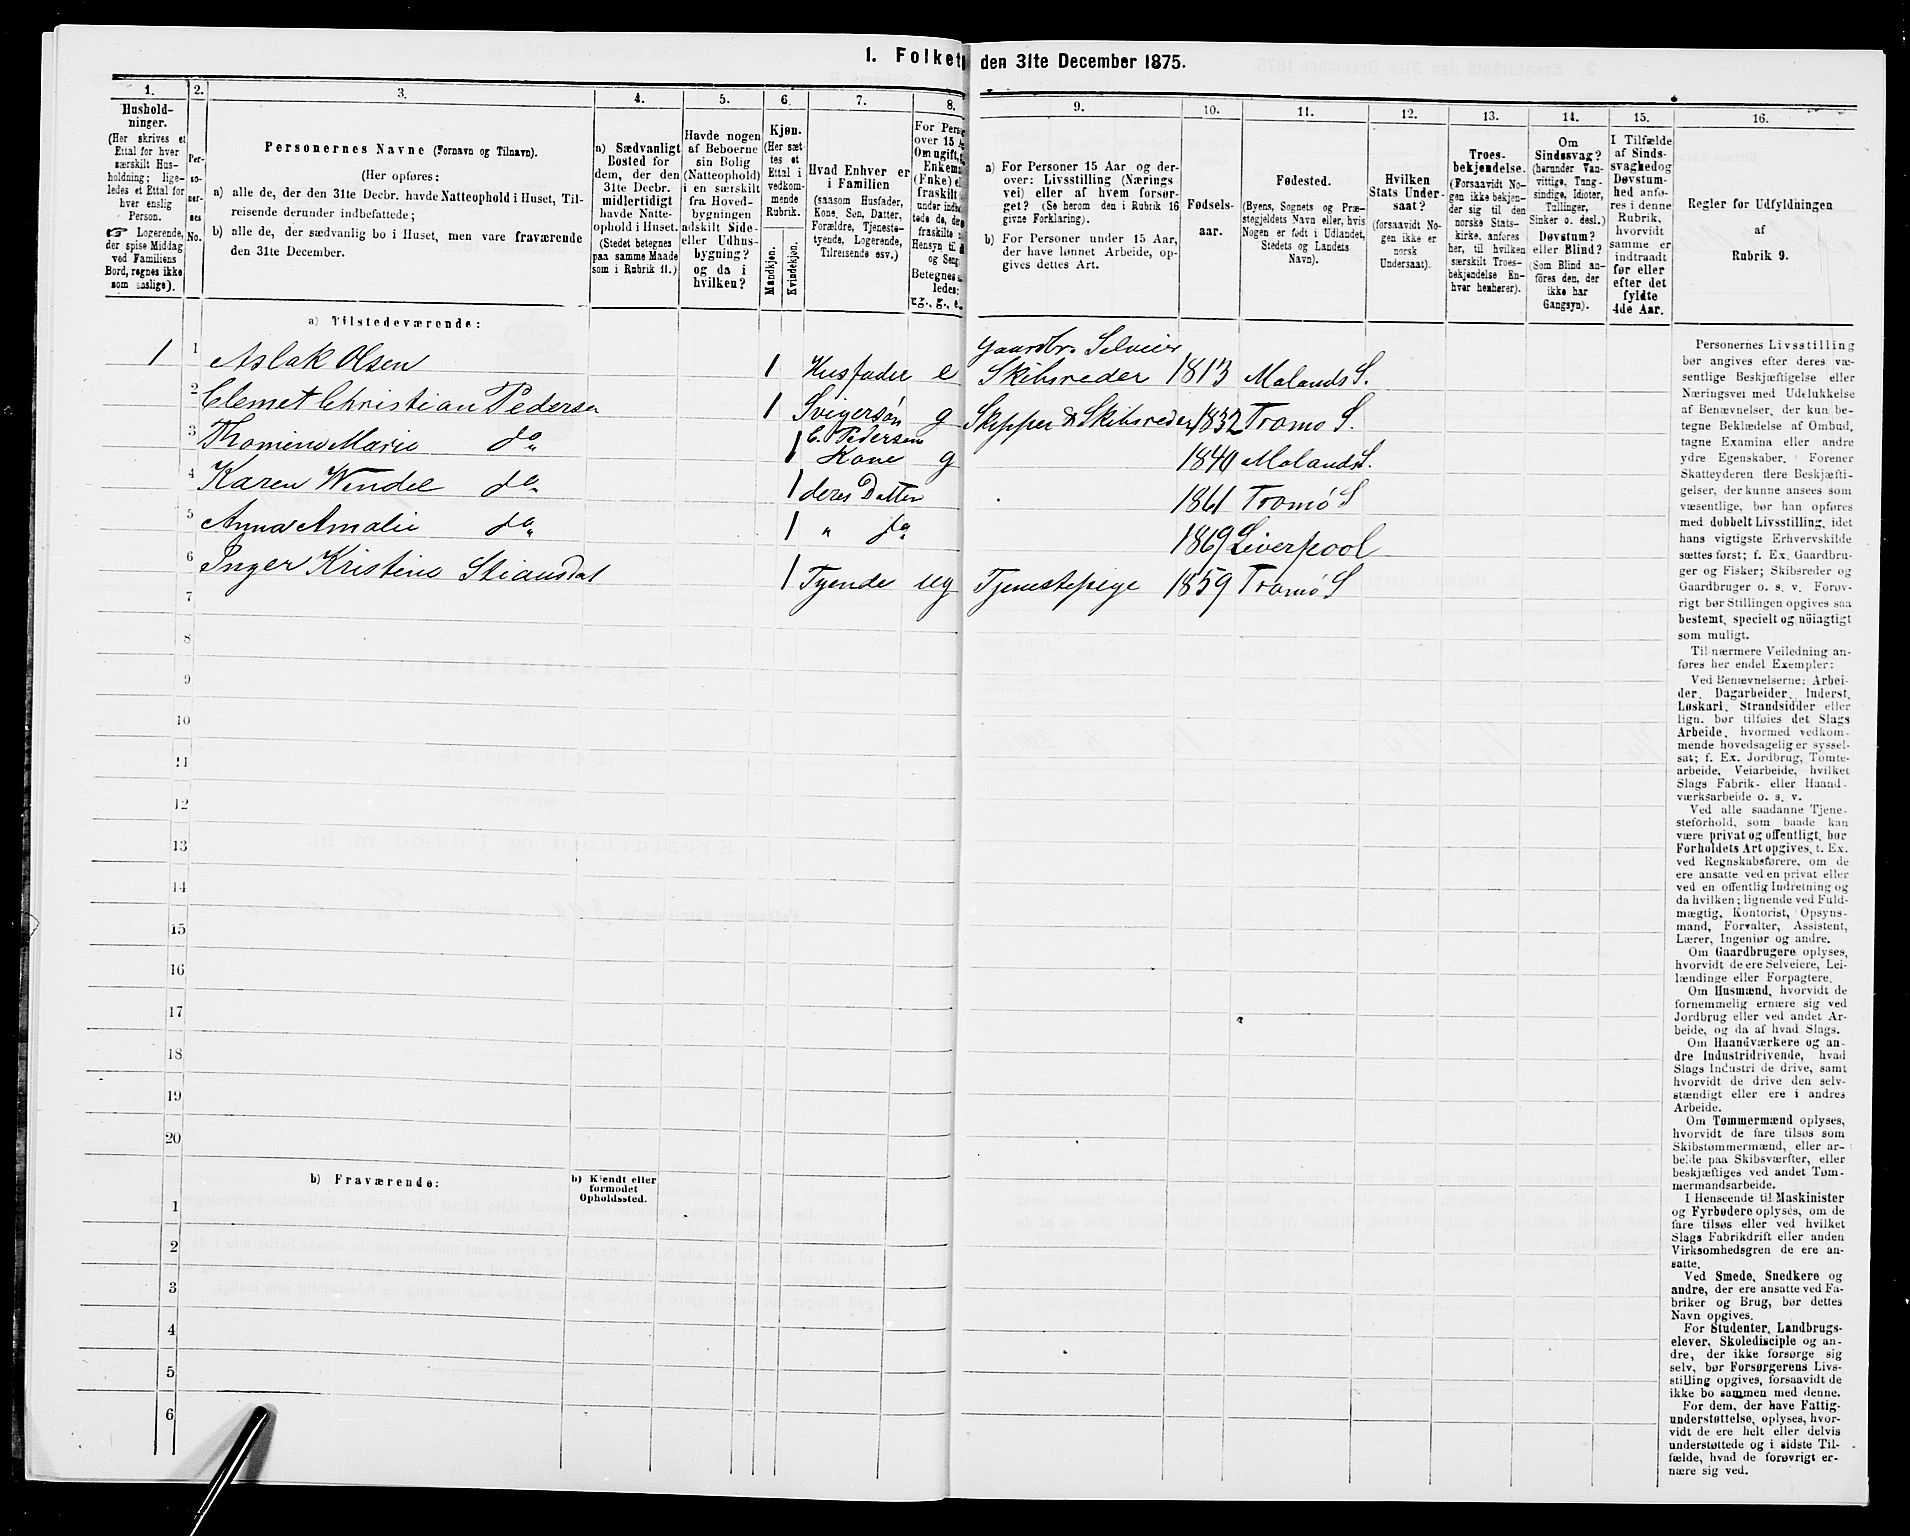 1. Folket den 31te December 1875.
1. 2. 3. 4. 5. 6. 7. 8. 9. 10. 11. 12. 13. 14. 15. 16.
Hushold-
ninger.
(Her skrives et
Ettal for hver
særskilt Hus-
holdning; lige-
ledes et Ettal for
hver enslig
Person.
☞ Logerende,
der spise Middag
ved Familiens
Bord, regnes ikke
som enslige).
Per-
so-
ner-
nes
No.
Personernes Navne (Fornavn og Tilnavn).
(Her opføres:
a) alle de, der den 31te Decbr. havde Natteophold i Huset, Til-
reisende derunder indbefattede;
b) alle de, der sædvanlig bo i Huset, men vare fraværende
den 31te December.
a) Sædvanligt
Bosted for
dem, der den
31te Decbr.
midlertidigt
havde Natte-
ophold i Huset.
(Stedet betegnes
paa samme Maade
som i Rubrik 11.)
Havde nogen
af Beboerne
sin Bolig
(Natteophold)
i en særskilt
fra Hoved-
bygningen
adskilt Side-
eller Udhus-
bygning?
og da i
hvilken?
Kjøn.
(Her sæt-
tes et
Ettal i
vedkom-
mende
Rubrik.
Mandkjøn.
Kvindekjøn.
Hvad Enhver er
i Familien
(saasom Husfader,
Kone, Søn, Datter,
Forældre, Tjeneste-
tyende, Logerende,
Tilreisende osv.)
For Perso
over 15 A
Om ugift,
Enkema
(Enke) el
fraskilt
under indbe
tede de, de
fraskilte
Hensyn til
og Seng.
Betegnes
ledes:
ug., g., e.
a) For Personer 15 Aar og der-
over: Livsstilling (Nærings-
vei) eller af hvem forsør-
get? (Se herom den i Rubrik 16
givne Forklaring).
b) For Personer under 15 Aar,
der have lønnet Arbeide, op-
gives dettes Art.
Fødsels-
aar.
Fødested.
(Byens, Sognets og Præ-
stegjeldets Navn eller, hvis
Nogen er født i Udlandet,
Stedets og Landets
Navn).
Hvilken
Stats Under-
saat?
(forsaavidt No-
gen ikke er
norsk
Undersaat).
Troes-
bekjendelse.
(Forsaavidt No-
gen ikke bekjen-
der sig til den
norske Stats-
kirke, anføres
her, til hvilken
særskilt Troes-
bekjendelse En-
hver henhører).
Om
Sindssvag?
(herunder Van-
vittige, Tung-
sindige, Idioter,
Tullinger,
Sinker o. desl.)
Døvstum?
eller Blind?
(Som Blind an-
føres den, der
ikke har
Gangsyn).
I Tilfælde
af Sinds-
svaghed og
Døvstum-
hed anfø-
res i denne
Rubrik,
hvorvidt
samme er
indtraadt
før eller
efter det
fyldte
4de Aar.
Regler for Udfyldningen
af
Rubrik 9.
a) Tilstedeværende:
Gaardbr. Selveier
1 1 Aslak Olsen 1 Husfader e Skibsreder 1813 Molands S.
2 Clemet Christian Pedersen 1 Svigersøn g Skipper & Skibsreder 1832 Tromø S.
C. Pedersen
3 Thomine Marie do 1 Kone g 1840 Molands S.
4 Karen Wendel do 1 deres Datter 1861 Tromø S
5 Anna Amalie do 1 " do 1869 Liverpool
6 Inger Kristine Stiansdat 1 Tyende ug Tjenestepige 1859 Tromø S
7
8
9
10
11
12
13
14
15
16
17
18
19
20
b) Fraværende:
b) Kjendt eller
formodet
Opholdssted.
1
2
3
4
5
6
Personernes Livsstilling
bør angives efter deres væ-
sentlige Beskjæftigelse eller
Næringsvei med Udelukkelse
af Benævnelser, der kun be-
tegne Beklædelse af Ombud,
tagne Examina eller andre
ydre Egenskaber. Forener
Skatteyderen flere Beskjæfti-
gelser, der kunne ansees som
væsentlige, bør han opføres
med dobbelt Livsstilling, idet
hans vigtigste Erhvervskilde
sættes først; f. Ex. Gaardbru-
ger og Fisker; Skibsreder og
Gaardbruger o. s. v. Forøv-
rigt bør Stillingen opgives saa
bestemt, specielt og nøiagtigt
som muligt.
Til nærmere Veiledning an-
føres her endel Exempler:
Ved Benævnelserne: Arbei-
der, Dagarbeider, Inderst,
Løskarl, Strandsidder eller
lign. bør tilføies det Slags
Arbeide, hvormed vedkom-
mende hovedsagelig er syssel-
sat; f. Ex. Jordbrug, Tomte-
arbeide, Veiarbeide, hvilket
Slags Fabrik- eller Haand-
værksarbeide o. s. v.
Ved alle saadanne Tjene-
steforhold, som baade kan
være privat og offentligt, bør
Forholdets Art opgives, f. Ex.
ved Regnskabsførere, om de
ere ansatte ved en privat eller
ved en offentlig Indretning og
da hvilken; lignende ved Fuld-
mægtig, Kontorist, Opsyns-
mand, Forvalter, Assistent,
Lærer, Ingeniør og andre.
Om Gaardbrugere oplyses,
hvorvidt de ere Selveiere, Lei-
lændinge eller Forpagtere.
Om Husmænd, hvorvidt de
fornemmelig ernære sig ved
Jordbrug eller ved andet Ar-
beide, og da af hvad Slags.
Om Haandværkere og an-
dre Industridrivende, hvad
Slags Industri de drive, samt
hvorvidt de drive den selv-
stændigt eller ere i andres
Arbeide.
Om Tømmermænd oplyses,
hvorvidt de fare tilsøs som
Skibstømmermænd, eller ar-
beide paa Skibsværfter, eller
beskjæftiges ved andet Tøm-
mermandsarbeide.
I Henseende til Maskinister
og Fyrbødere oplyses, om de
fare tilsøs eller ved hvilket
Slags Fabrikdrift eller anden
Virksomhedsgren de ere an-
satte.
Ved Smede, Snedkere og
andre, der ere ansatte ved Fa-
briker og Brug, bør dettes
Navn opgives.
For Studenter, Landbrugs-
elever, Skoledisciple og an-
dre, der ikke forsørge sig
selv, bør Forsørgerens Livs-
stilling opgives, forsaavidt de
ikke bo sammen med denne.
For dem, der have Fattig-
understøttelse, oplyses, hvor-
vidt de ere helt eller delvis
understøttede og i sidste Til-
fælde, hvad de forøvrigt er-
nære sig ved.